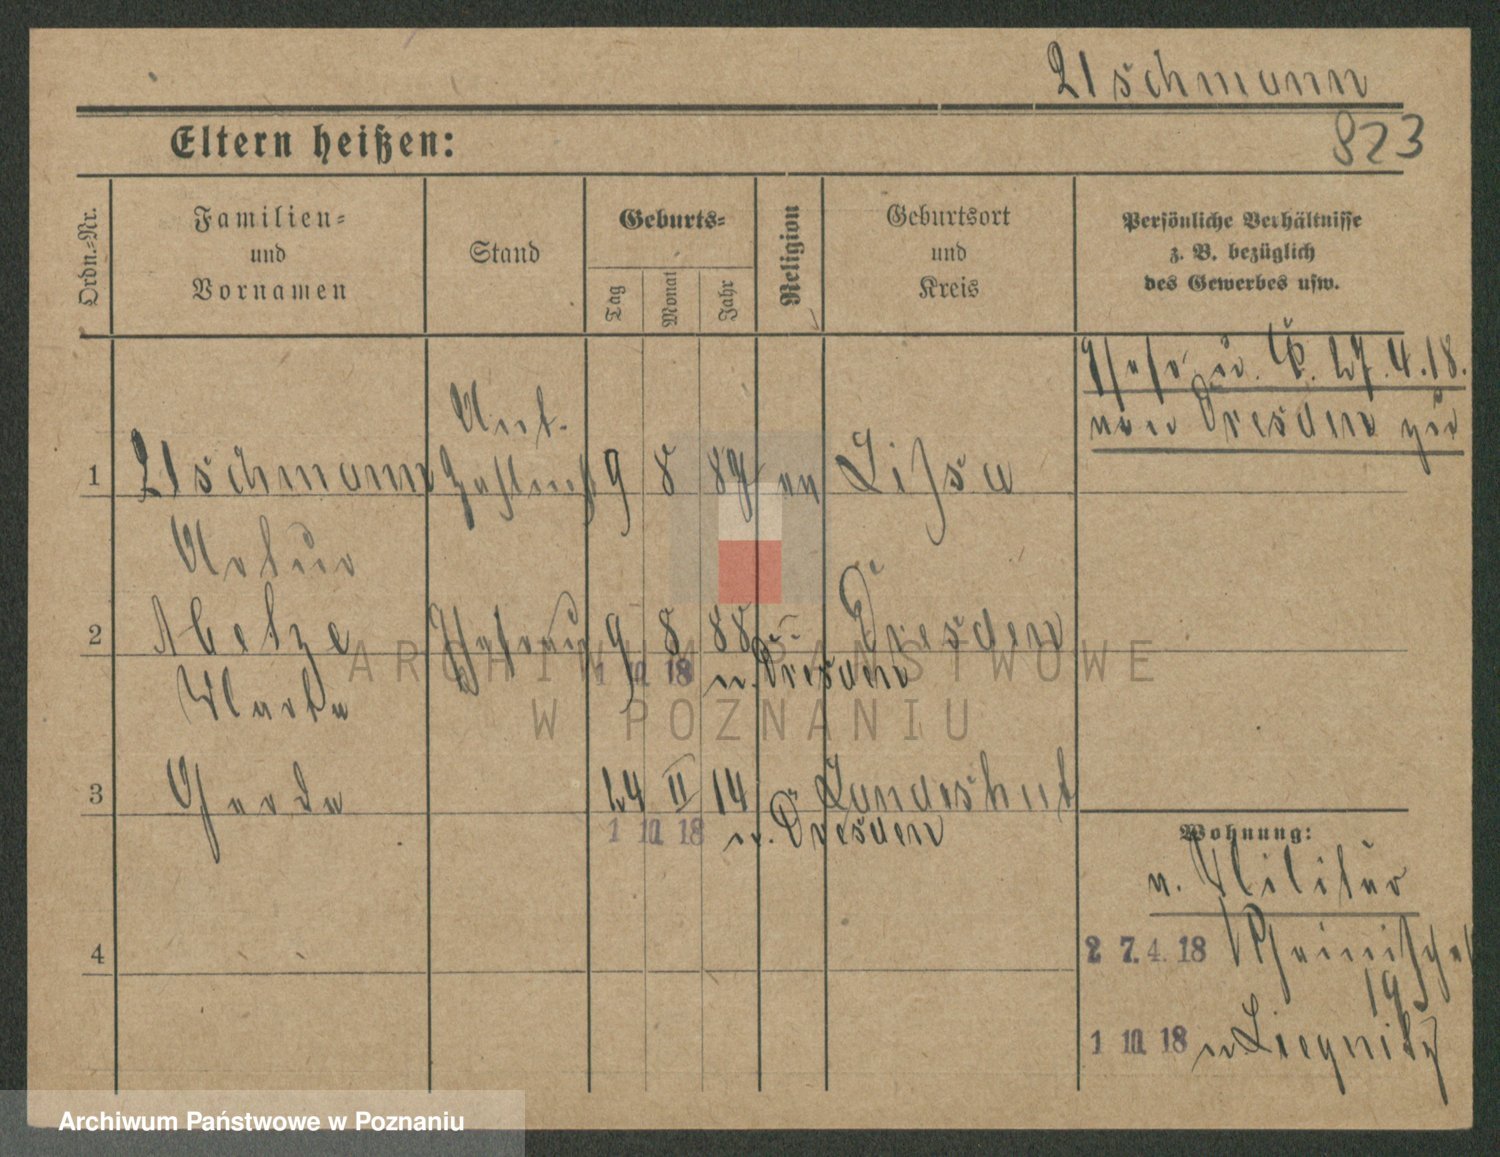 Aschmann
823
Eltern heißen:
Ordn.=Nr.
Familien=
und
Vornamen
Stand
Geburts=
Tag
Monat
Jahr
Religion
Geburtsort
und
Kreis
Persönliche Verhältnisse
z. B. bezüglich
des Gewerbes usw.
Ehefr. u. K. 27.4.18.
von Dresden zu
1
Aschmann
Unt.
Zahlmst
9 8 87 ev Lissa
Artur
2
Abetze
Ehefrau
9 8 88 " Dresden
1 10 18 n. Dresden
Marta
3
Gerda
24 II 14 " Landeshut
1 10 18 n. Dresden
4
Wohnung:
v. Militär
27.4.18
19
1 10 18 n Liegnitz
ARCHIWUM PAŃSTWOWE
W POZNANIU
Archiwum Państwowe w Poznaniu